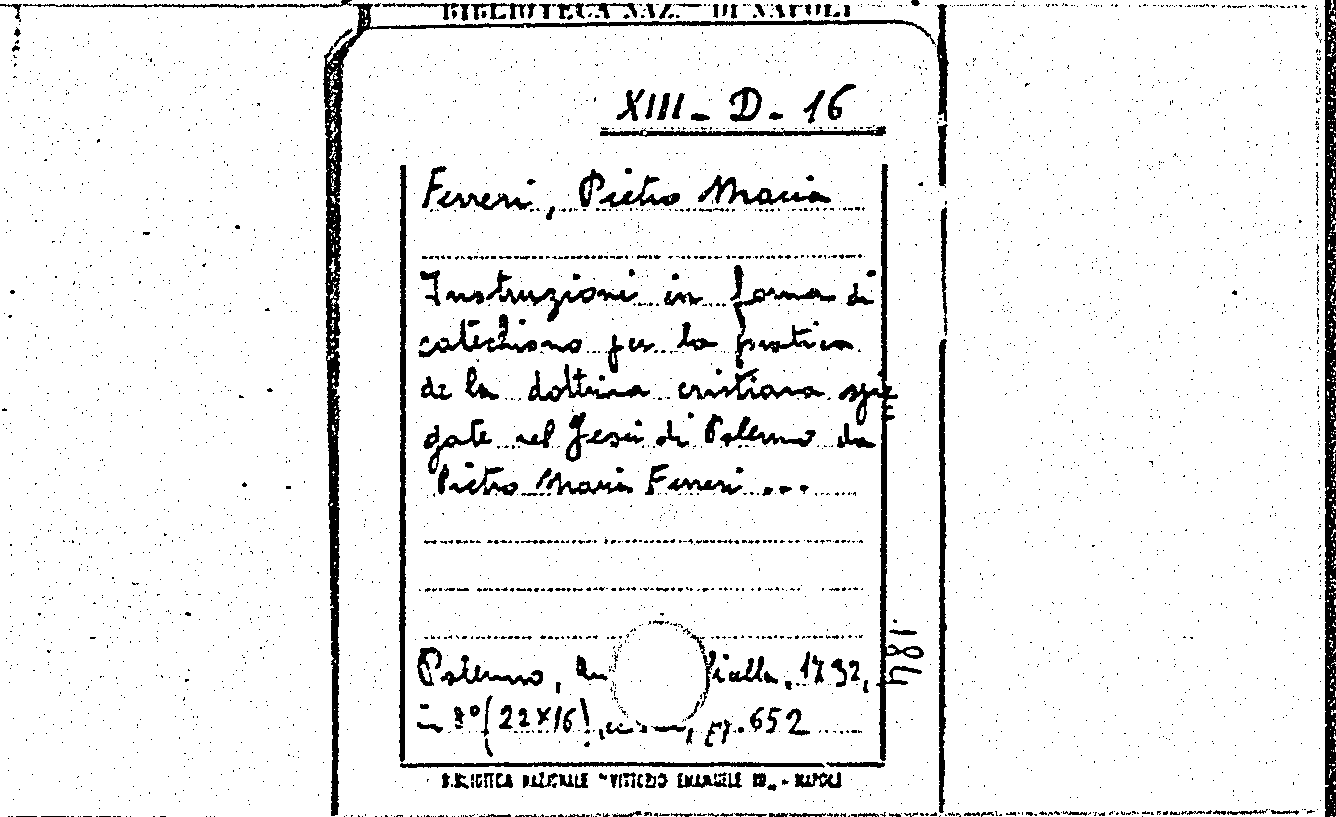 BIBLIOTECA NAZ. DI NAPOLI
XIII - D - 16
Ferreri, Pietro Maria
Instruzioni in forma di
catechismo per la pratica
de la dottrina cristiana spie
gate nel Gesù di Palermo da
Pietro Maria Ferreri ...
Palermo, 1732,
in 8° (22x16), pp. 652
BIBLIOTECA NAZIONALE "VITTORIO EMANUELE III" - NAPOLI